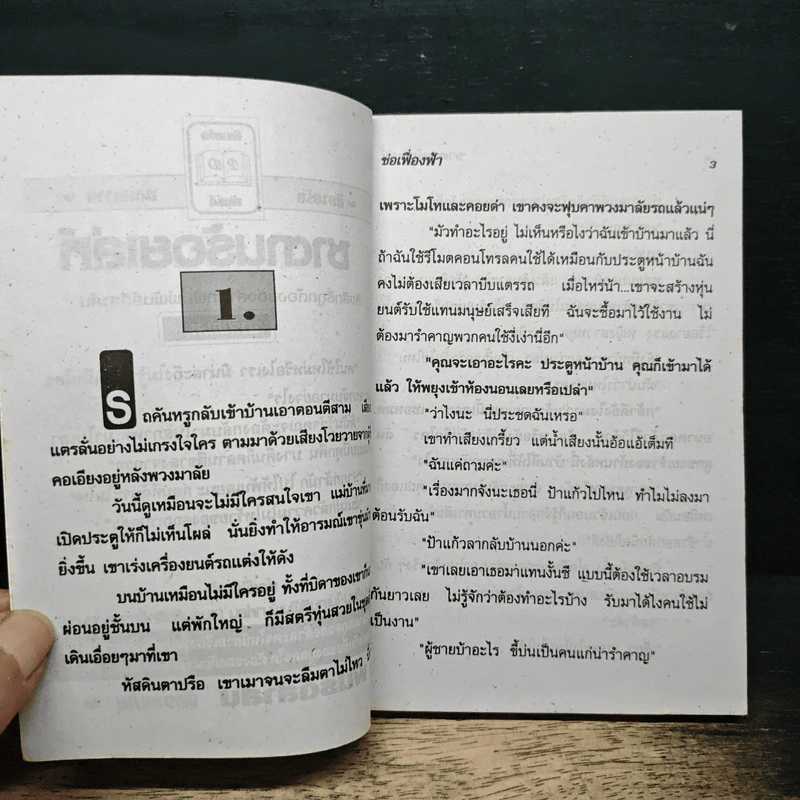 1.
รถคันหรูกลับเข้าบ้านเอาตอนตีสาม
แตรลั่นอย่างไม่เกรงใจใคร ตามมาด้วยเสียงโวยวายจาก
คอเอียงอยู่หลังพวงมาลัย
วันนี้ดูเหมือนจะไม่มีใครสนใจเขา แม่บ้านที่
เปิดประตูให้ก็ไม่เห็นโผล่ นั่นยิ่งทำให้อารมณ์เขาขุ่น
ยิ่งขึ้น เขาเร่งเครื่องยนต์รถแต่งให้ดัง
บนบ้านเหมือนไม่มีใครอยู่ ทั้งที่บิดาของเขาก็
ผ่อนอยู่ชั้นบน แต่พักใหญ่ๆ ก็มีสตรีหุ่นสวยใน
เดินเอื่อยๆมาที่เขา
ทัสดินตาปรือ เขาเมาจนจะลืมตาไม่ไหว
ช่อเฟื่องฟ้า
3
เพราะโมโหและคอยด่า เขาคงจะฟุบคาพวงมาลัยรถแล้วแน่ๆ
"มัวทำอะไรอยู่ ไม่เห็นหรือไงว่าฉันเข้าบ้านมาแล้ว นี่
ถ้าฉันใช้รีโมตคอนโทรลคนใช้ได้เหมือนกับประตูหน้าบ้านฉัน
คงไม่ต้องเสียเวลาบีบแตรรถ เมื่อไหร่น้า...เขาจะสร้างหุ่น
ยนต์รับใช้แทนมนุษย์เสร็จเสียที ฉันจะซื้อมาไว้ใช้งาน ไม่
ต้องมารำคาญพวกคนใช้งี่เง่านี่อีก"
"คุณจะเอาอะไรคะ ประตูหน้าบ้าน คุณก็เข้ามาได้
แล้ว ให้พยุงเข้าห้องนอนเลยหรือเปล่า"
"ว่าไงนะ นี่ประชดฉันเหรอ"
เขาทำเสียงเกรี้ยว แต่น้ำเสียงนั้นอ้อแอ้เต็มที
"ฉันแค่ถามค่ะ"
"เรื่องมากจังนะเธอนี่ ป้าแก้วไปไหน ทำไมไม่ลงมา
ต้อนรับฉัน"
"ป้าแก้วลากลับบ้านนอกค่ะ"
"เขาเลยเอาเธอมาแทนงั้นซี แบบนี้ต้องใช้เวลาอบรม
กันยาวเลย ไม่รู้จักว่าต้องทำอะไรบ้าง รับมาได้ไงคนใช้ไม่
เป็นงาน"
"ผู้ชายบ้าอะไร ขี้บ่นเป็นคนแก่น่ารำคาญ"